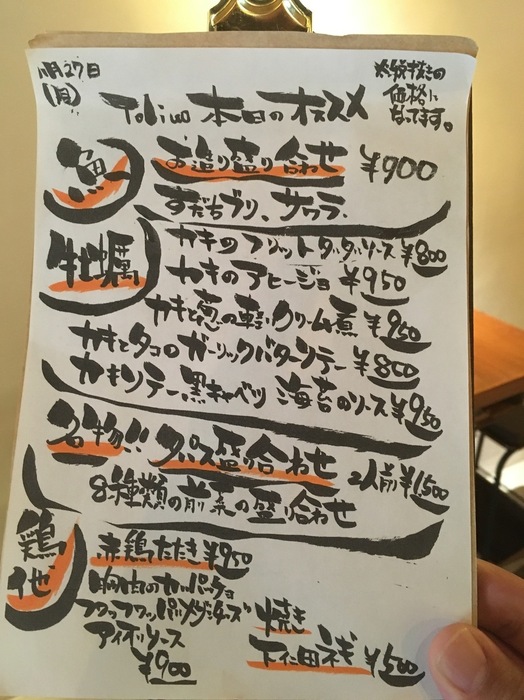 11月27日
(月)
※税抜きの
価格に
なってます。
Toliwo 本日のオススメ
魚
お造り盛り合わせ ¥900
すだちブリ、サワラ、
牡蠣
カキのフリットタルタルソース ¥800
カキのアヒージョ ¥950
カキと葱の軽いクリーム煮 ¥950
カキとタコのガーリックバターソテー ¥850
カキソテー、黒キャベツ 海苔のソース ¥950
名物!! タパス盛り合わせ 2人前¥1,500
8種類の前菜の盛り合わせ
鶏
他
赤鶏たたき ¥950
胸肉のカルパッチョ
フワッフワッパルメザンチーズ
アイオリソース
¥900
焼き
下仁田ネギ ¥500